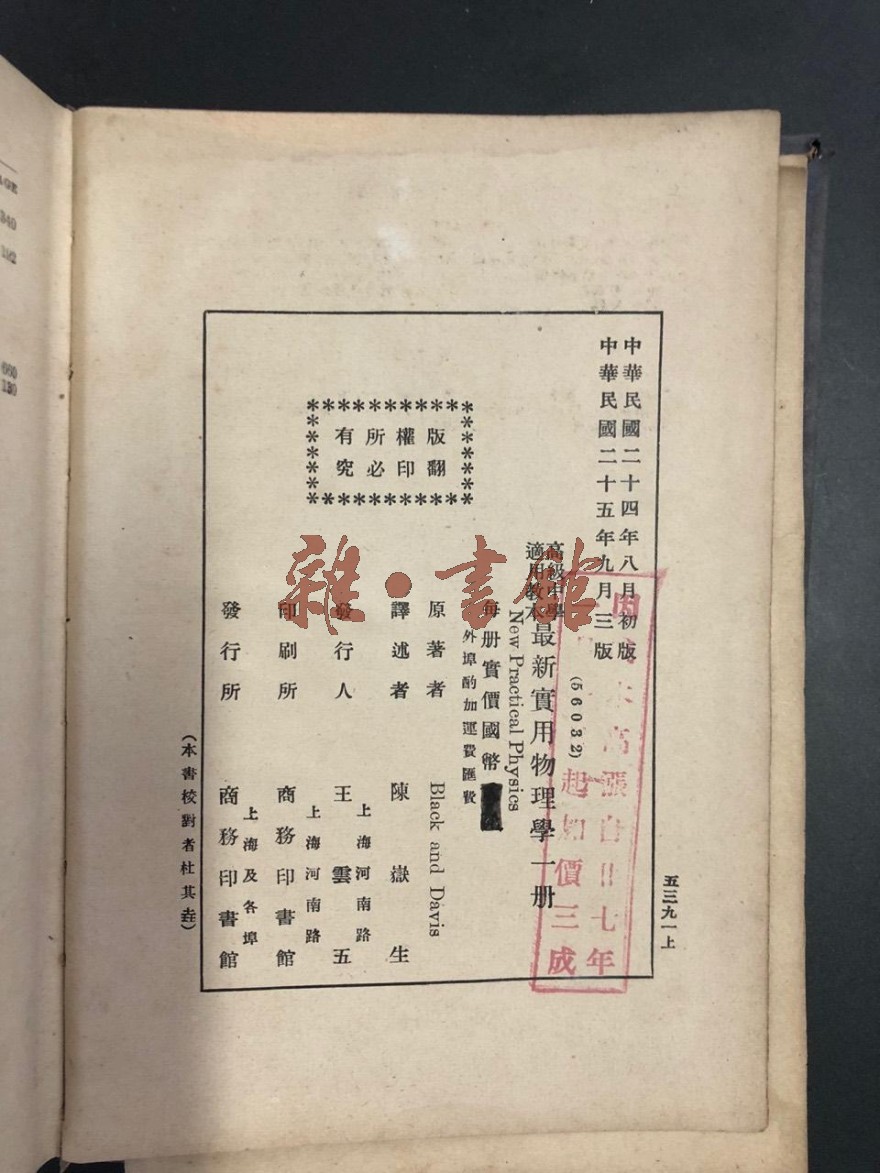 中華民國二十四年八月初版
中華民國二十五年九月三版
(56032)
高級中學
適用教本
最新實用物理學一册
New Practical Physics
每册實價國幣
外埠酌加運費匯費
版權所有
翻印必究
原著者 Black and Davis
譯述者 陳嶽生
發行人 王雲五
上海河南路
印刷所 商務印書館
上海河南路
發行所 商務印書館
上海及各埠
(本書校對者杜其垚)
五三九一上
高漲自廿七年
起加價三成
雜·書館
AGE
340
192
660
130